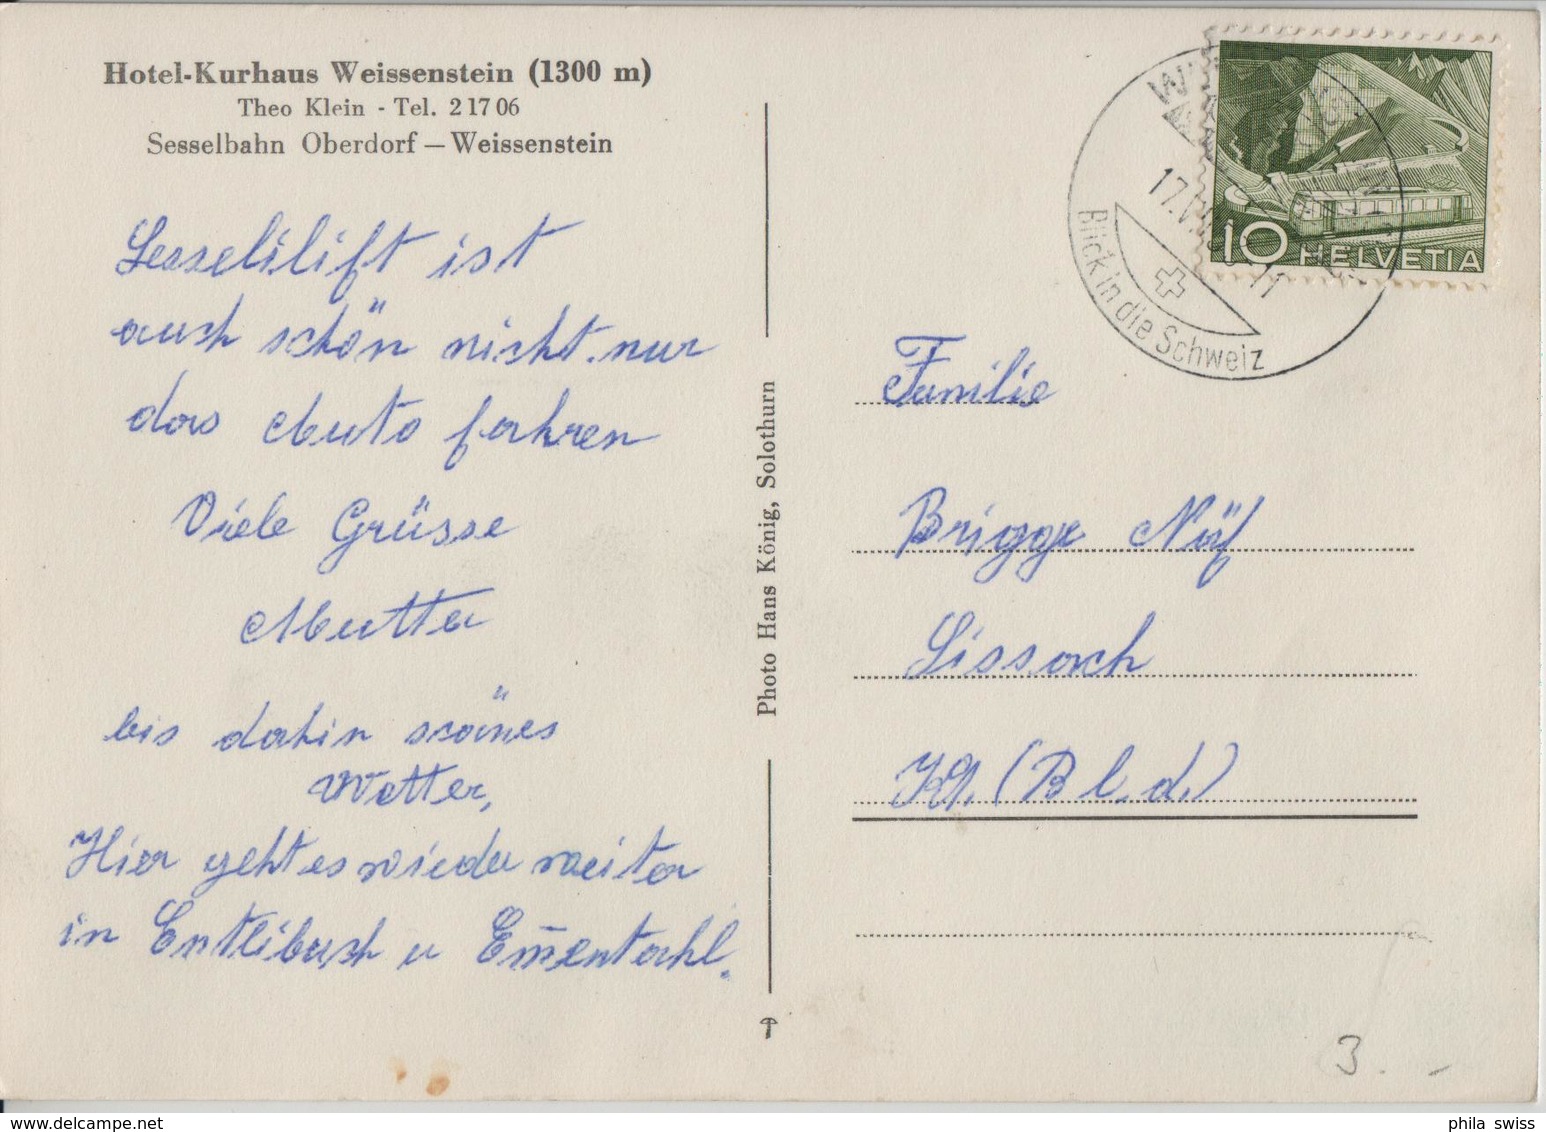 Hotel-Kurhaus Weissenstein (1300 m)
Theo Klein - Tel. 2 17 06
Sesselbahn Oberdorf — Weissenstein
Sesselilift ist
auch schön nicht nur
das Auto fahren
Viele Grüsse
Mutter
bis dahin scönes
Wetter,
Hier geht es wieder weiter
in Entlibuch u Em̄entahl.
Photo Hans König, Solothurn
10 HELVETIA
17.V
11
Blick in die Schweiz
Familie
Brigge Näf
Sissach
Kt. (B l. d.)
3. -
phila swiss